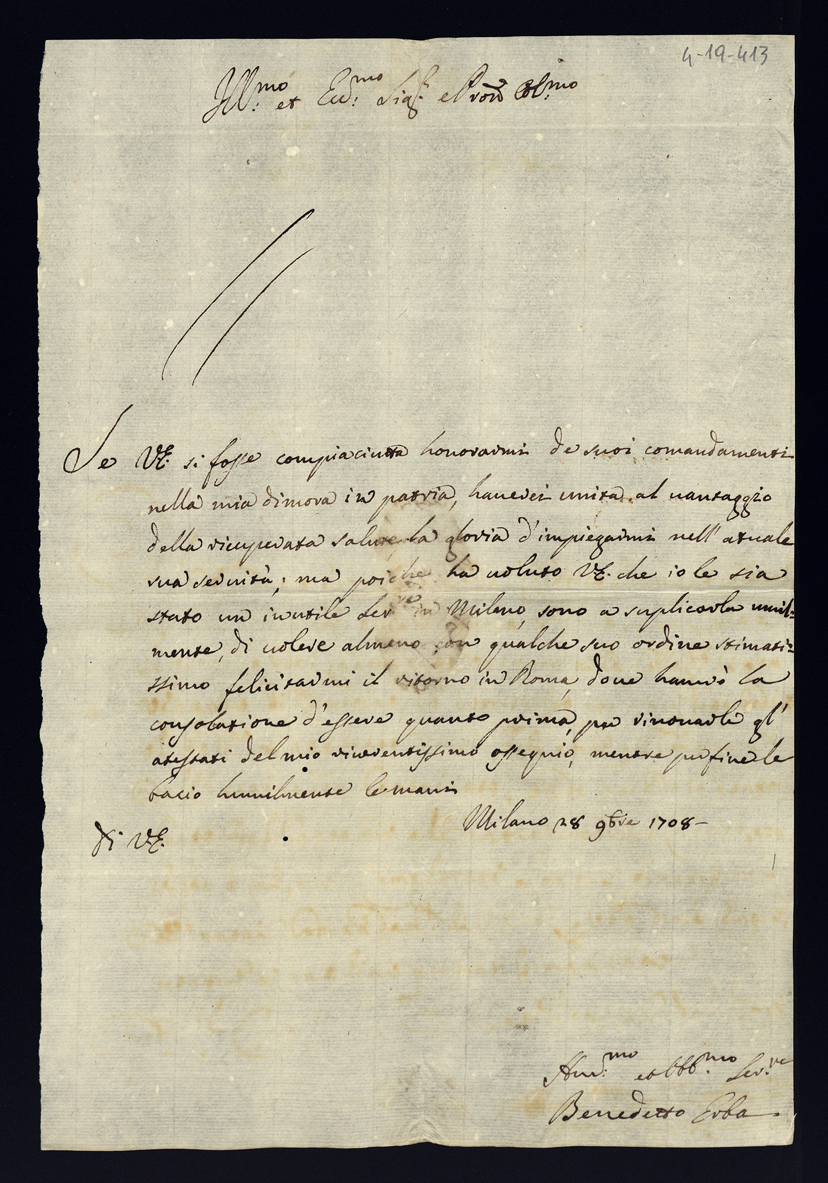 4-19-413
Ill:mo et Ecc:mo Sig:r e Pron Col:mo
Se VE. si fosse compiaciuta honorarmi de suoi comandamenti
nella mia dimora in patria, haverei unita al vantaggio
della ricuperata salute la gloria d'impiegarmi nell'atuale
sua servitù; ma poiche ha voluto VE. che io le sia
stato un inutile Ser:re in Milano, sono a suplicarla umil=
mente, di volere almeno con qualche suo ordine stimatis=
ssimo felicitarmi il ritorno in Roma, dove haurò la
consolatione d'essere quanto prima, per rinovarle gl'
atestati del mio riverentissimo ossequio, mentre per fine le
bacio humilmente le mani
Milano 28 9bre 1708-
Di VE.
Hu:mo et Obb:mo Ser:re
Benedetto Erba